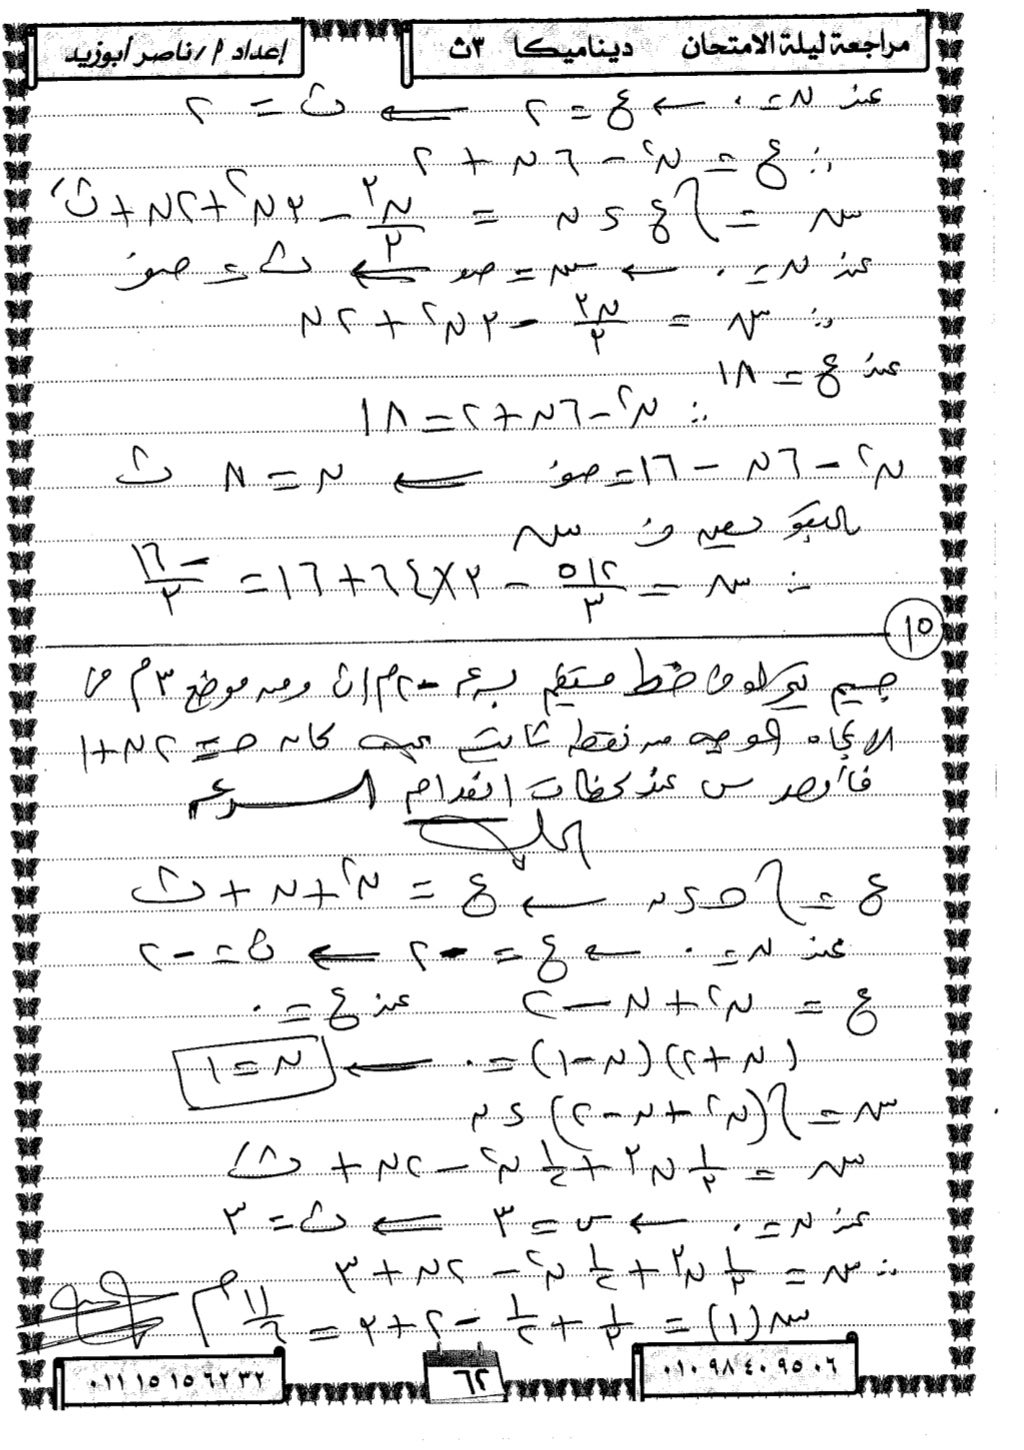 مراجعة ليلة الامتحان ديناميكا ٣ث
إعداد م/ناصر أبوزيد
عند ن = ٠ ← ع = ٢ ⟸ ث = ٢
∴ ع = ن٢ - ٦ن + ٢
س = ∫ ع ء ن = ن٣/٣ - ٣ن٢ + ٢ن + ث،
عند ن = ٠ ← س = صفر ⟸ ث = صفر
∴ س = ن٣/٣ - ٣ن٢ + ٢ن
عند ع = ١٨
∴ ن٢ - ٦ن + ٢ = ١٨
ن٢ - ٦ن - ١٦ = صفر ⟸ ن = ٨ ث
بالتعويض في س
∴ س = ٥١٢/٣ - ٣×٦٤ + ١٦ = -١٦/٣
١٥
جسيم يتحرك في خط مستقيم بسرعة -٢م/ث ومن موضع ٣م في
الاتجاه الموجب من نقطة ثابتة بحيث كان حـ = ٢ن + ١
فأوجد س عند لحظات انعدام السرعة
الحل
ع = ∫ حـ ء ن ← ع = ن٢ + ن + ث
عند ن = ٠ ← ع = -٢ ⟸ ث = -٢
ع = ن٢ + ن - ٢ عند ع = ٠
(ن + ٢)(ن - ١) = ٠ ← ن = ١
س = ∫(ن٢ + ن - ٢) ء ن
س = ١/٣ ن٣ + ١/٢ ن٢ - ٢ن + ث،
عند ن = ٠ ← س = ٣ ⟸ ث = ٣
∴ س = ١/٣ ن٣ + ١/٢ ن٢ - ٢ن + ٣
س(١) = ١/٣ + ١/٢ - ٢ + ٣ = ١١/٦ م
٠١٠ ٩٨ ٤٠ ٩٥ ٠٦
٦٢
٠١١ ١٥ ١٥ ٦٢ ٣٢